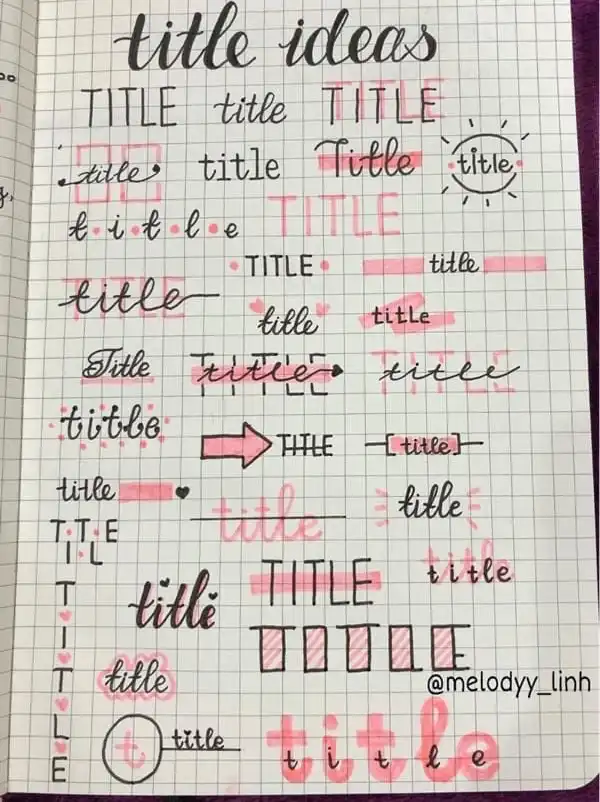 title ideas
TITLE title TITLE
title title Title title
t i t l e TITLE
TITLE title
title title title
Title title title
title TITLE [title]
title title title
TITLE
TITLE title
T
I
T
L
E
title TITLE
title @melodyy_linh
t title title